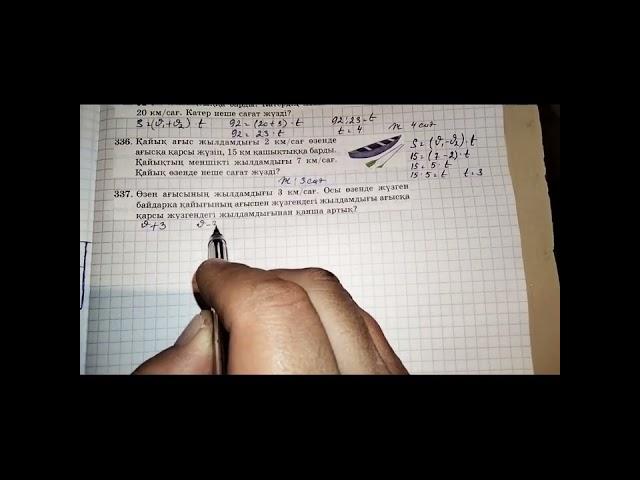 20 км/сағ. Катер неше сағат жүзді?
S=(ϑ₁+ϑ₂)·t 92=(20+3)·t 92:23=t
92=23·t t=4 ж 4 сағ
336. Қайық ағыс жылдамдығы 2 км/сағ өзенде
ағысқа қарсы жүзіп, 15 км қашықтыққа барды.
Қайықтың меншікті жылдамдығы 7 км/сағ.
Қайық өзенде неше сағат жүзді?
ж: 3 сағ
S=(ϑ₁-ϑ₂)·t
15=(7-2)·t
15=5·t
15:5=t t=3
337. Өзен ағысының жылдамдығы 3 км/сағ. Осы өзенде жүзген
байдарка қайығының ағыспен жүзгендегі жылдамдығы ағысқа
қарсы жүзгендегі жылдамдығынан қанша артық?
ϑ+3 ϑ-3